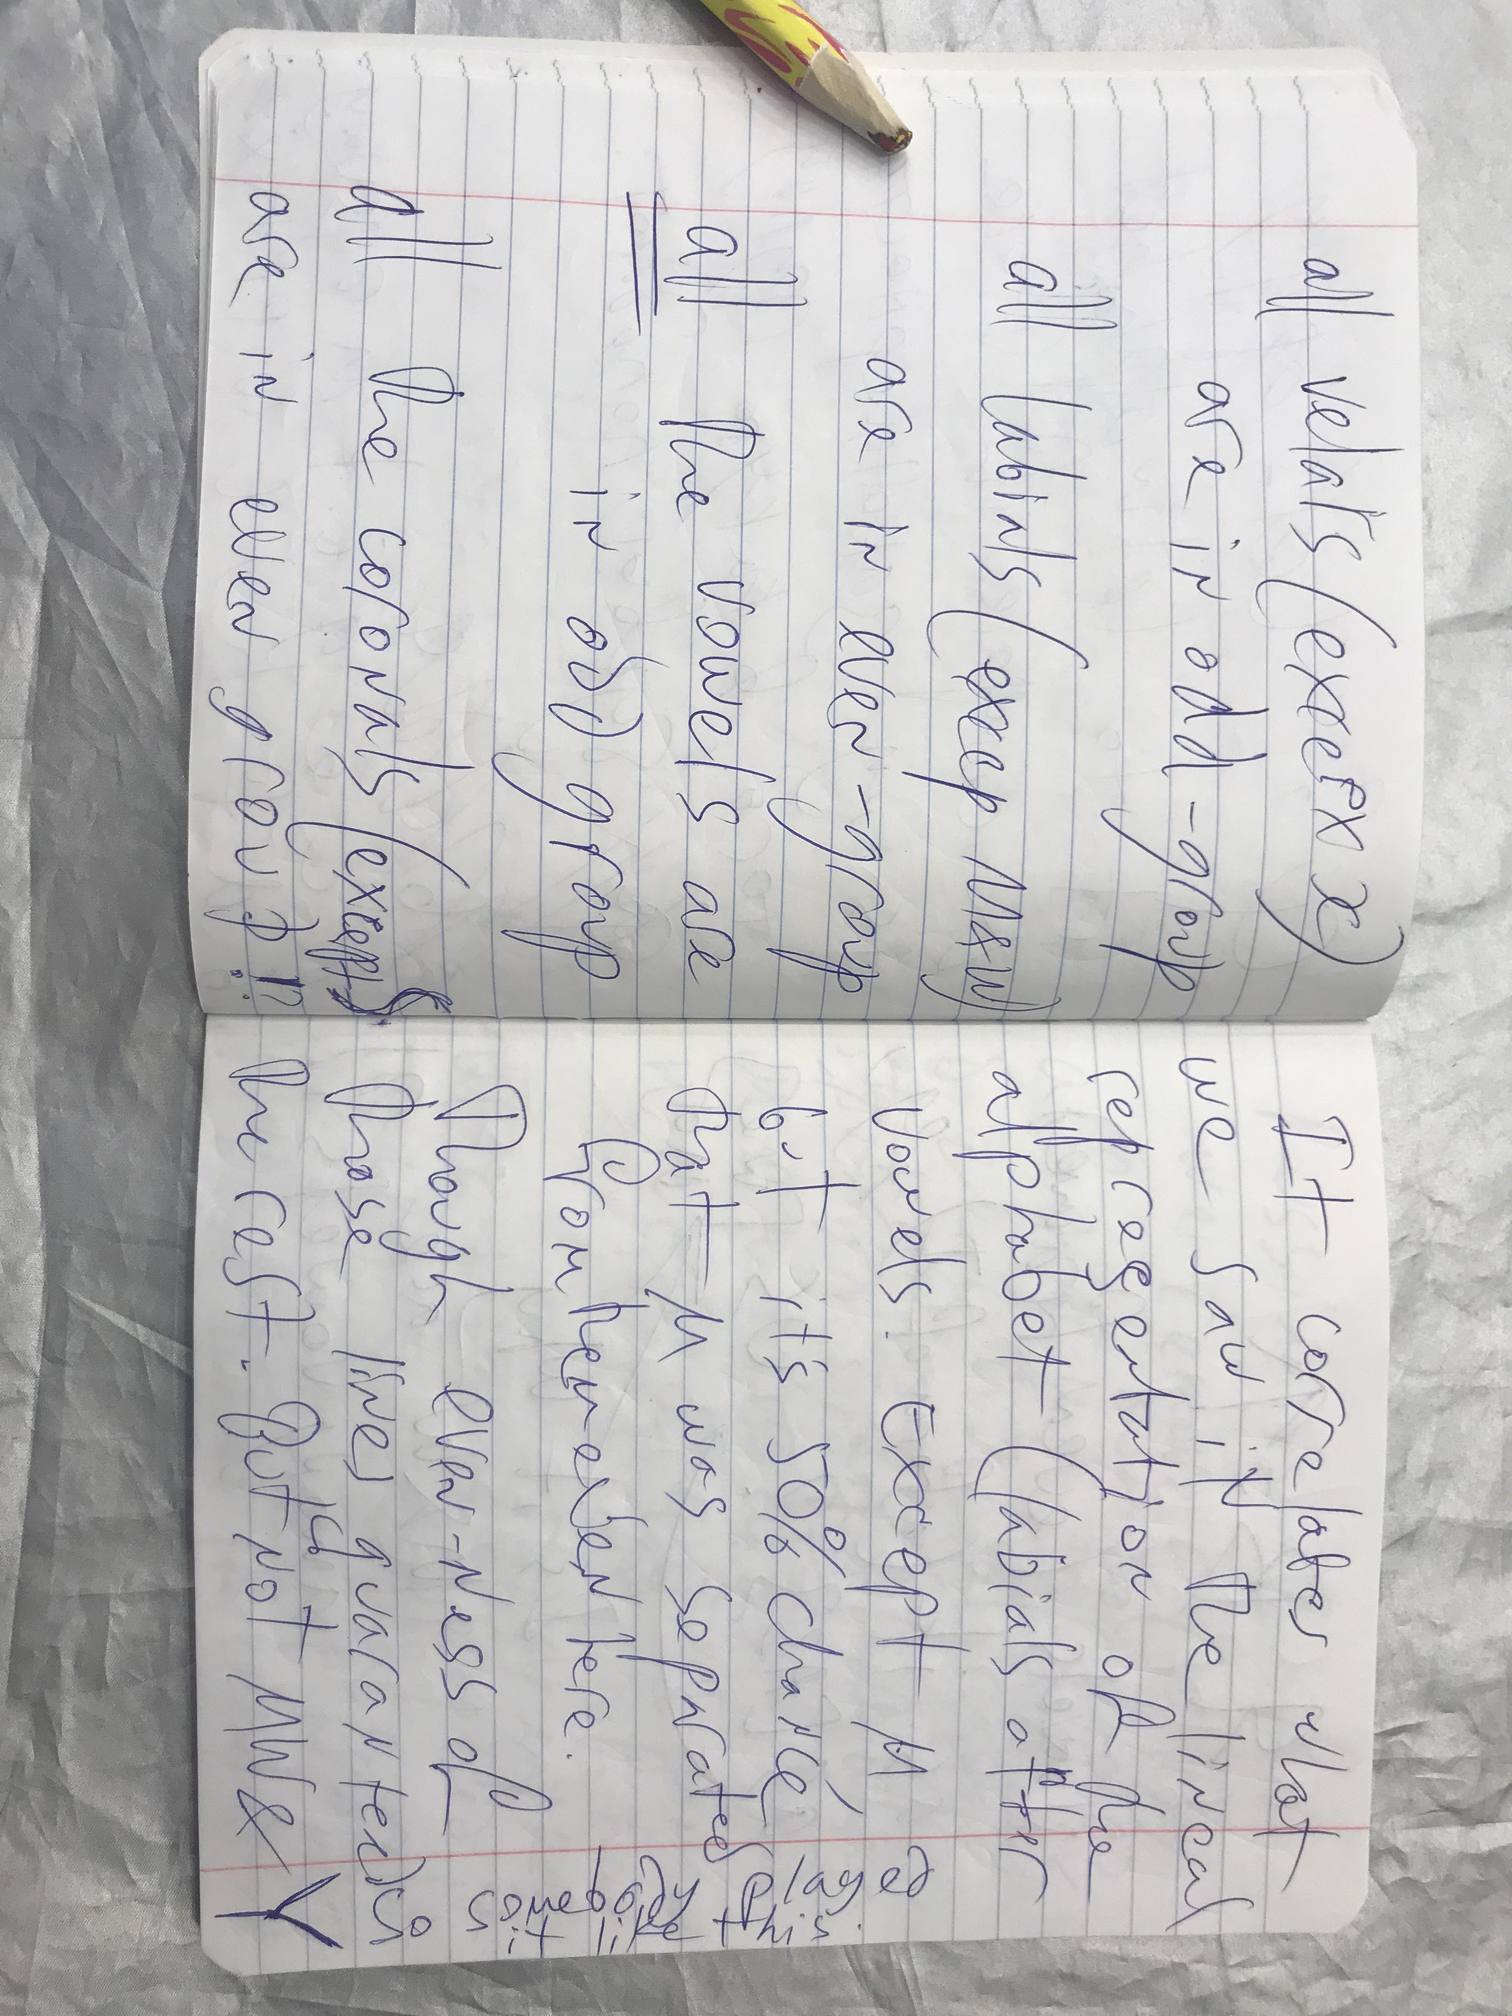 all velars (except X)
are in odd-group
all labials (excep M&W)
are in even-group
all the vowels are
in odd group
all the coronals (except S
are in even group!!
It correlates what
we saw in the lineal
representation of the
alphabet (labials after
vowels. Except M
but it's 50% chance,
that M was seprated
from them even here.
Though even-ness of
those lines guaranteeds
the rest. But not MW&Y